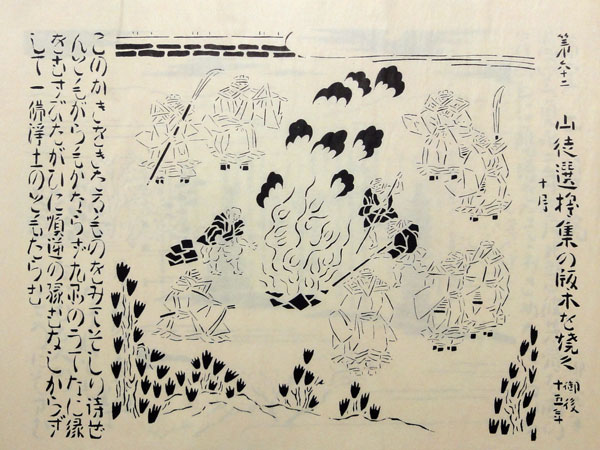 第六十二
山徒選擇集の版木を焼く
御後十五年
十月
このかきをきたるものをみてそしり侍ぜ
んともがらもかならず九品のうてなに縁
をむすびたがひに順逆の縁むなしからず
して一佛浄土のともたらむ